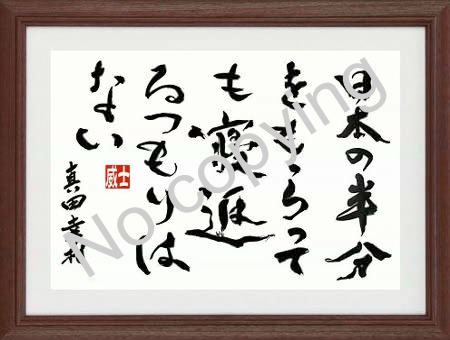 日本の半分
をもらって
も寝返
るつもりは
ない
真田幸村
士威
No copying